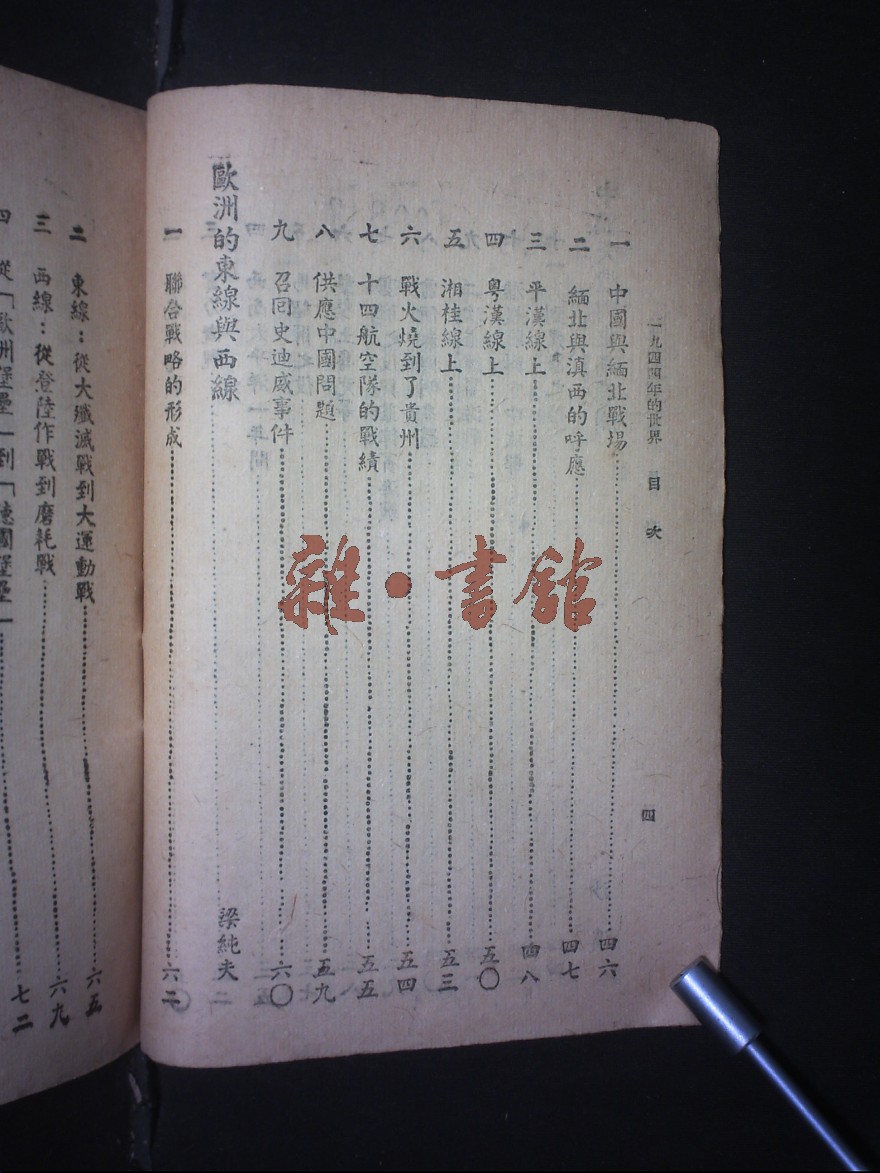 一九四四年的世界 目次 四
一 中國與緬北戰場 四六
二 緬北與滇西的呼應 四七
三 平漢線上 四八
四 粵漢線上 五〇
五 湘桂線上 五三
六 戰火燒到了貴州 五四
七 十四航空隊的戰績 五五
八 供應中國問題 五九
九 召回史迪威事件 六〇
歐洲的東線與西線 梁純夫
一 聯合戰略的形成 六二
二 東線：從大殲滅戰到大運動戰 六五
三 西線：從登陸作戰到磨耗戰 六九
四 從「歐洲堡壘」到「德國堡壘」 七二
雜·書館